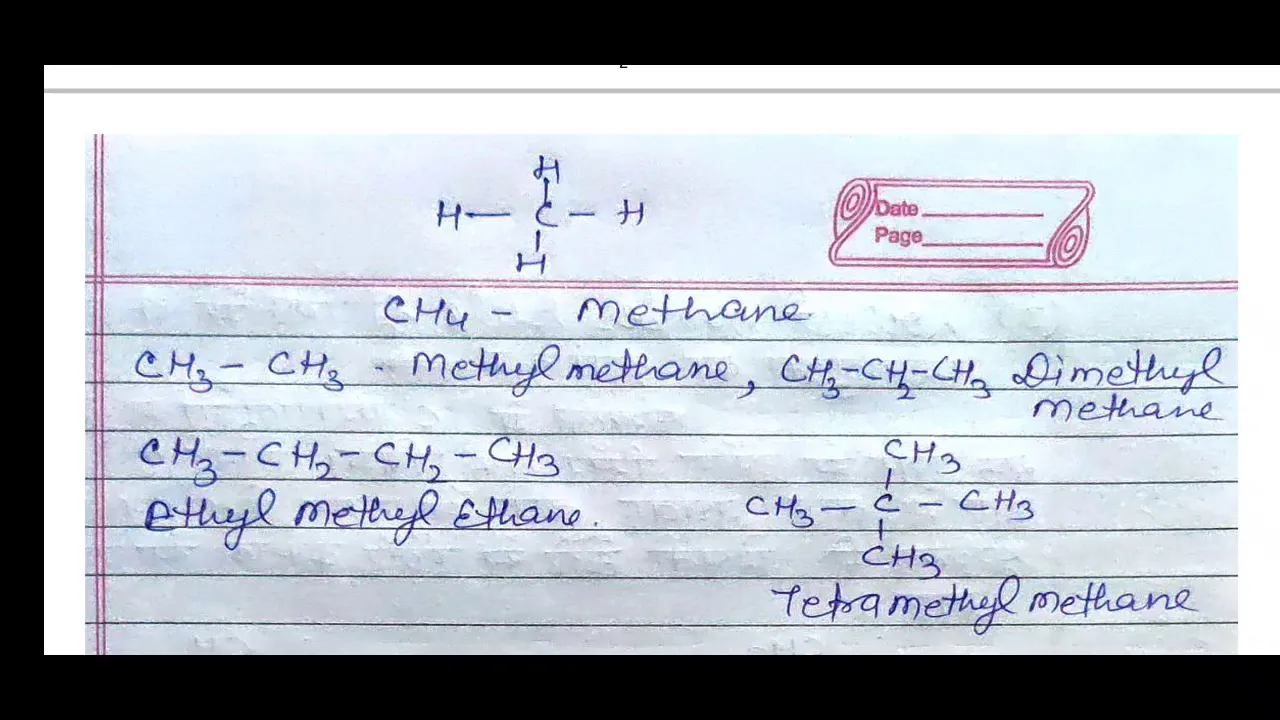 H
H — C — H
Date
Page
H
CH4 - Methane.
CH3 - CH3 . Methyl methane, CH3-CH2-CH3 Dimethyl
methane
CH3 - CH2 - CH2 - CH3
CH3
Ethyl methyl Ethane.
CH3 — C — CH3
CH3
Tetramethyl methane